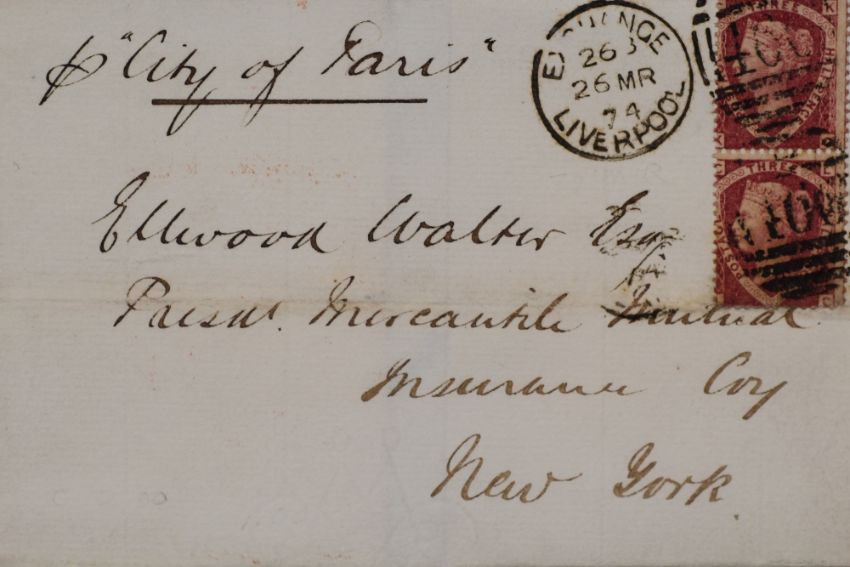 p "City of Paris"
EXCHANGE
26 MR
74
LIVERPOOL
THREE
THREE
Ellwood Walter Esq
Presdt. Mercantile Mutual
Insurance Coy
New York